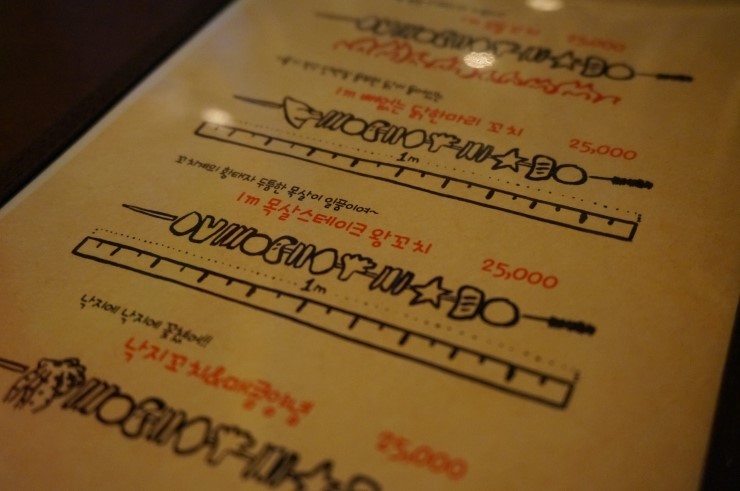 25,000
1m 뼈없는 닭한마리 꼬치 25,000
1m
꼬치계의 황태자 두툼한 목살이 일품이여~
1m 목살스테이크 왕꼬치 25,000
1m
낙지에 낙지에 꽂혔어!!
낙지꼬치&매콤양념 25,000